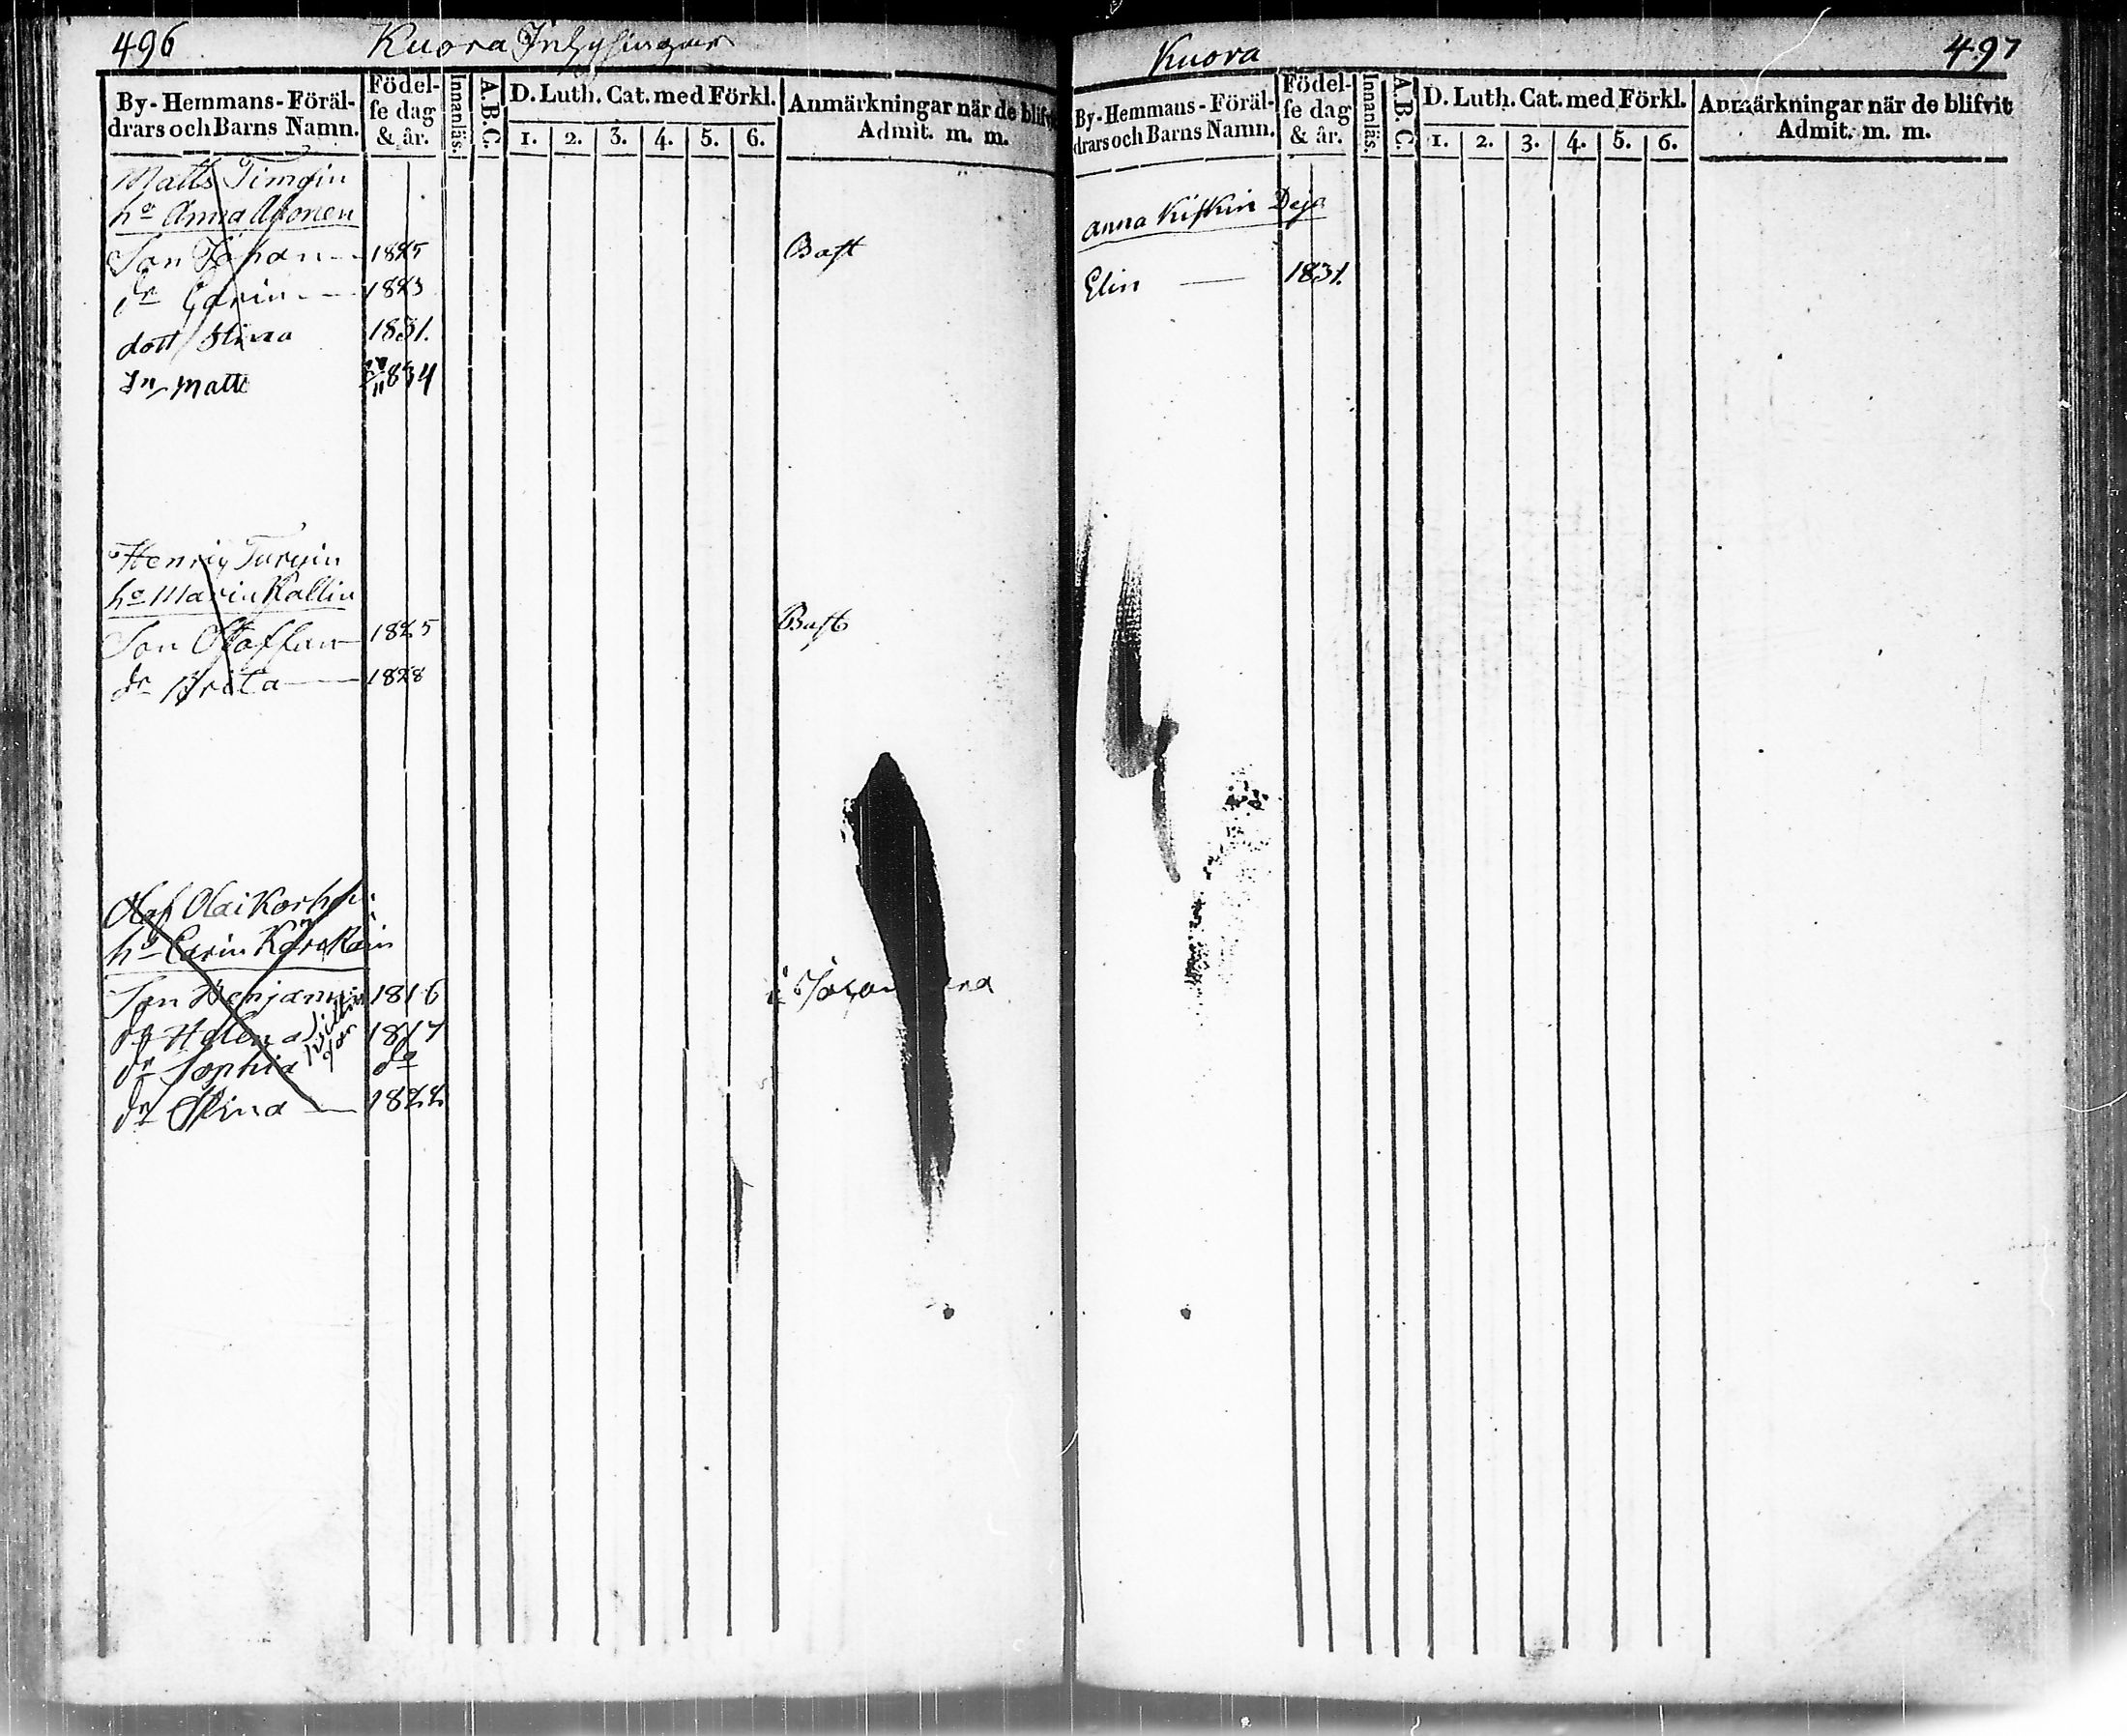 496
Kuora Inhysingar
By-Hemmans-Föräl-
drars och Barns Namn.
Födel-
se dag
& år.
Innanläs.
A.B.C.
D. Luth. Cat. med Förkl.
1. 2. 3. 4. 5. 6.
Anmärkningar när de blifvit
Admit. m. m.
Matts
ha Anna
Son Johan 1825 Bast
dr Carin 1823
dott Stina 1831.
Sn Matts 1834
Henric
ha Maria
Son Staffan 1825 Bast
dr Brita 1828
Olof Olai
ha Carin
Son Benjamin 1816
dr Helena 1817
dr Sophia do
dr Stina 1822
Kuora
497
By-Hemmans-Föräl-
drars och Barns Namn.
Födel-
se dag
& år.
Innanläs.
A.B.C.
D. Luth. Cat. med Förkl.
1. 2. 3. 4. 5. 6.
Anmärkningar när de blifvit
Admit. m. m.
Anna Deja
Elin 1831.